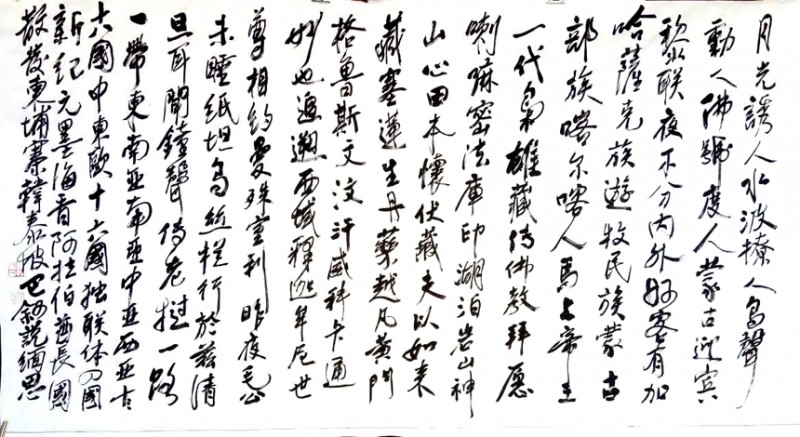 月光誘人水波撩人鳥聲
動人佛號度人蒙古迎賓
黎联夜不分内外好客有加
哈薩克族遊牧民族蒙古
部族喀尔喀人馬上帝王
一代梟雄藏传佛教拜愿
喇嘛密法庫印湖泊岩山神
山心田本懷伏藏夫以如来
藏塞蓮生丹藥越凡黄門
格鲁斯文汶汗威科卡通
妙也追溯西域釋迦牟尼世
尊相約曼殊室利昨夜毛公
未睡紙坦烏丝栏行於兹清
旦耳聞鐘聲传老挝一路
一帶東南亚南亚中亚西亚
六國中東歐十六國独联体四國
新纪元墨海香阿拉伯酋長國
散发東埔寨韓泰彼巴叙説緬思